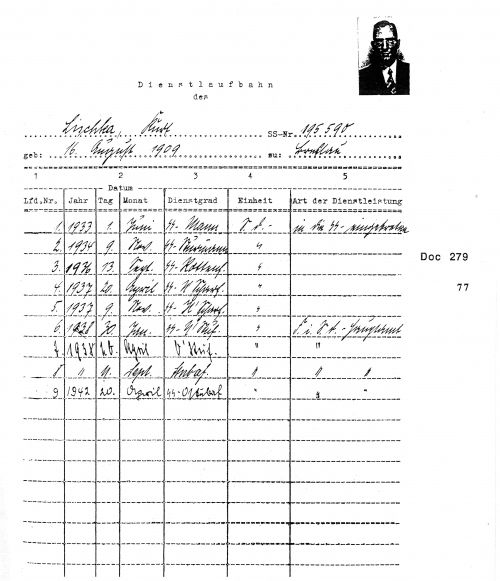 Dienstlaufbahn
des
Lischka, Kurt SS-Nr. 195 590
geb: 16. August 1909 zu: Breslau
1 2 3 4 5
Datum
Lfd.Nr. Jahr Tag Monat Dienstgrad Einheit Art der Dienstleistung
1. 1933 1. Juni SS-Mann in die SS-eingetreten
2. 1934 9. Nov. SS-Sturmmann "
3. 1936 13. Sept. SS-Rottenf. "
Doc 279
4. 1937 20. April "
77
5. 1937 9. Nov. "
6. 1938 30. Jan. "
7. 1938 20. April O'Stuf. " "
8 " 11. Sept. " " "
9 1942 20. April SS-Ostubaf " " "